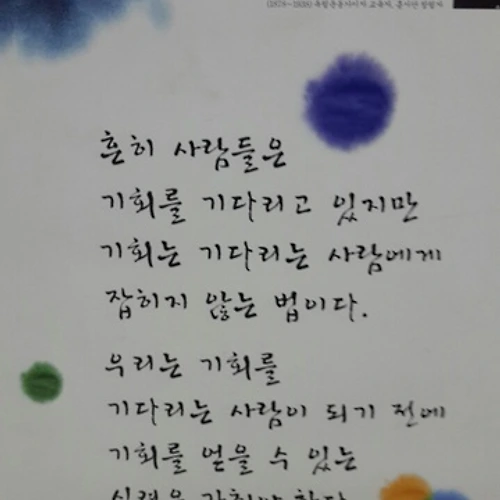 (1878~1938) 독립운동가이자 교육자, 흥사단 창립자
흔히 사람들은
기회를 기다리고 있지만
기회는 기다리는 사람에게
잡히지 않는 법이다.
우리는 기회를
기다리는 사람이 되기 전에
기회를 얻을 수 있는
실력을 갖춰야 한다